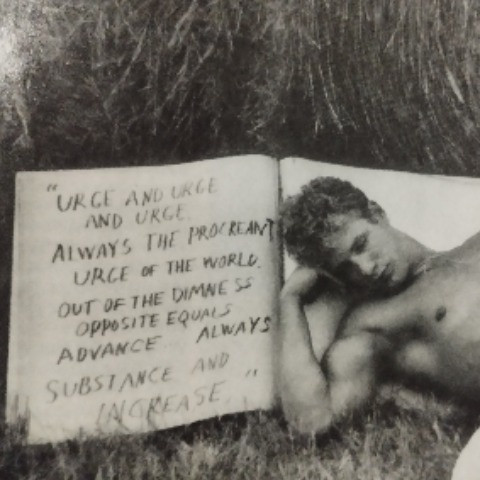 "URGE AND URGE
AND URGE.
ALWAYS THE PROCREANT
URGE OF THE WORLD.
OUT OF THE DIMNESS
OPPOSITE EQUALS
ADVANCE. ALWAYS
SUBSTANCE AND
INCREASE."